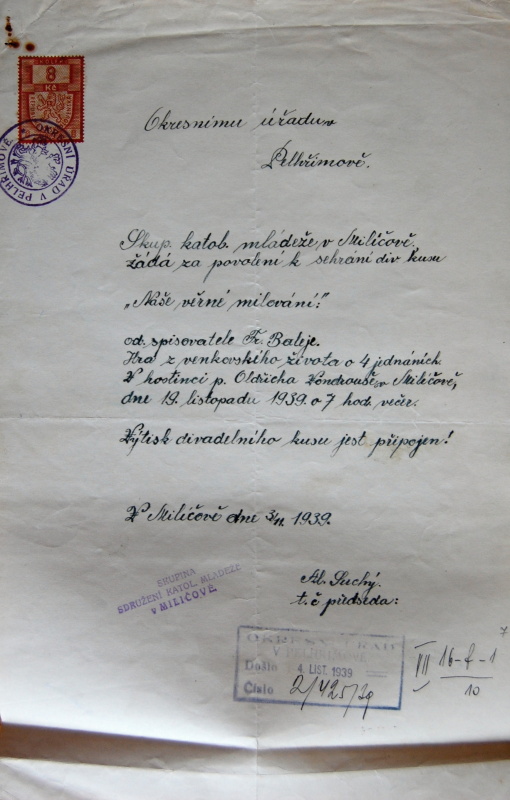 8
Kč
OKRESNÍ ÚŘAD V PELHŘIMOVĚ
Okresnímu úřadu v
Pelhřimově.
Skup. katol. mládeže v Miličově,
žádá za povolení k sehrání div kusu
„Naše věrné milování:"
od spisovatele Fr. Baleje.
Hra z venkovského života o 4 jednáních.
V hostinci p. Oldřicha Vondrouše v Miličově,
dne 19. listopadu 1939. o 7 hod. večer.
Výtisk divadelního kusu jest připojen!
V Miličově dne 3/11. 1939.
SKUPINA
SDRUŽENÍ KATOL. MLÁDEŽE
V MILIČOVĚ.
Al. Suchý.
t. č předseda:
OKRESNÍ ÚŘAD
V PELHŘIMOVĚ
Došlo 4. LIST. 1939
Číslo 2/425/39
VII 16-f-1
10
7